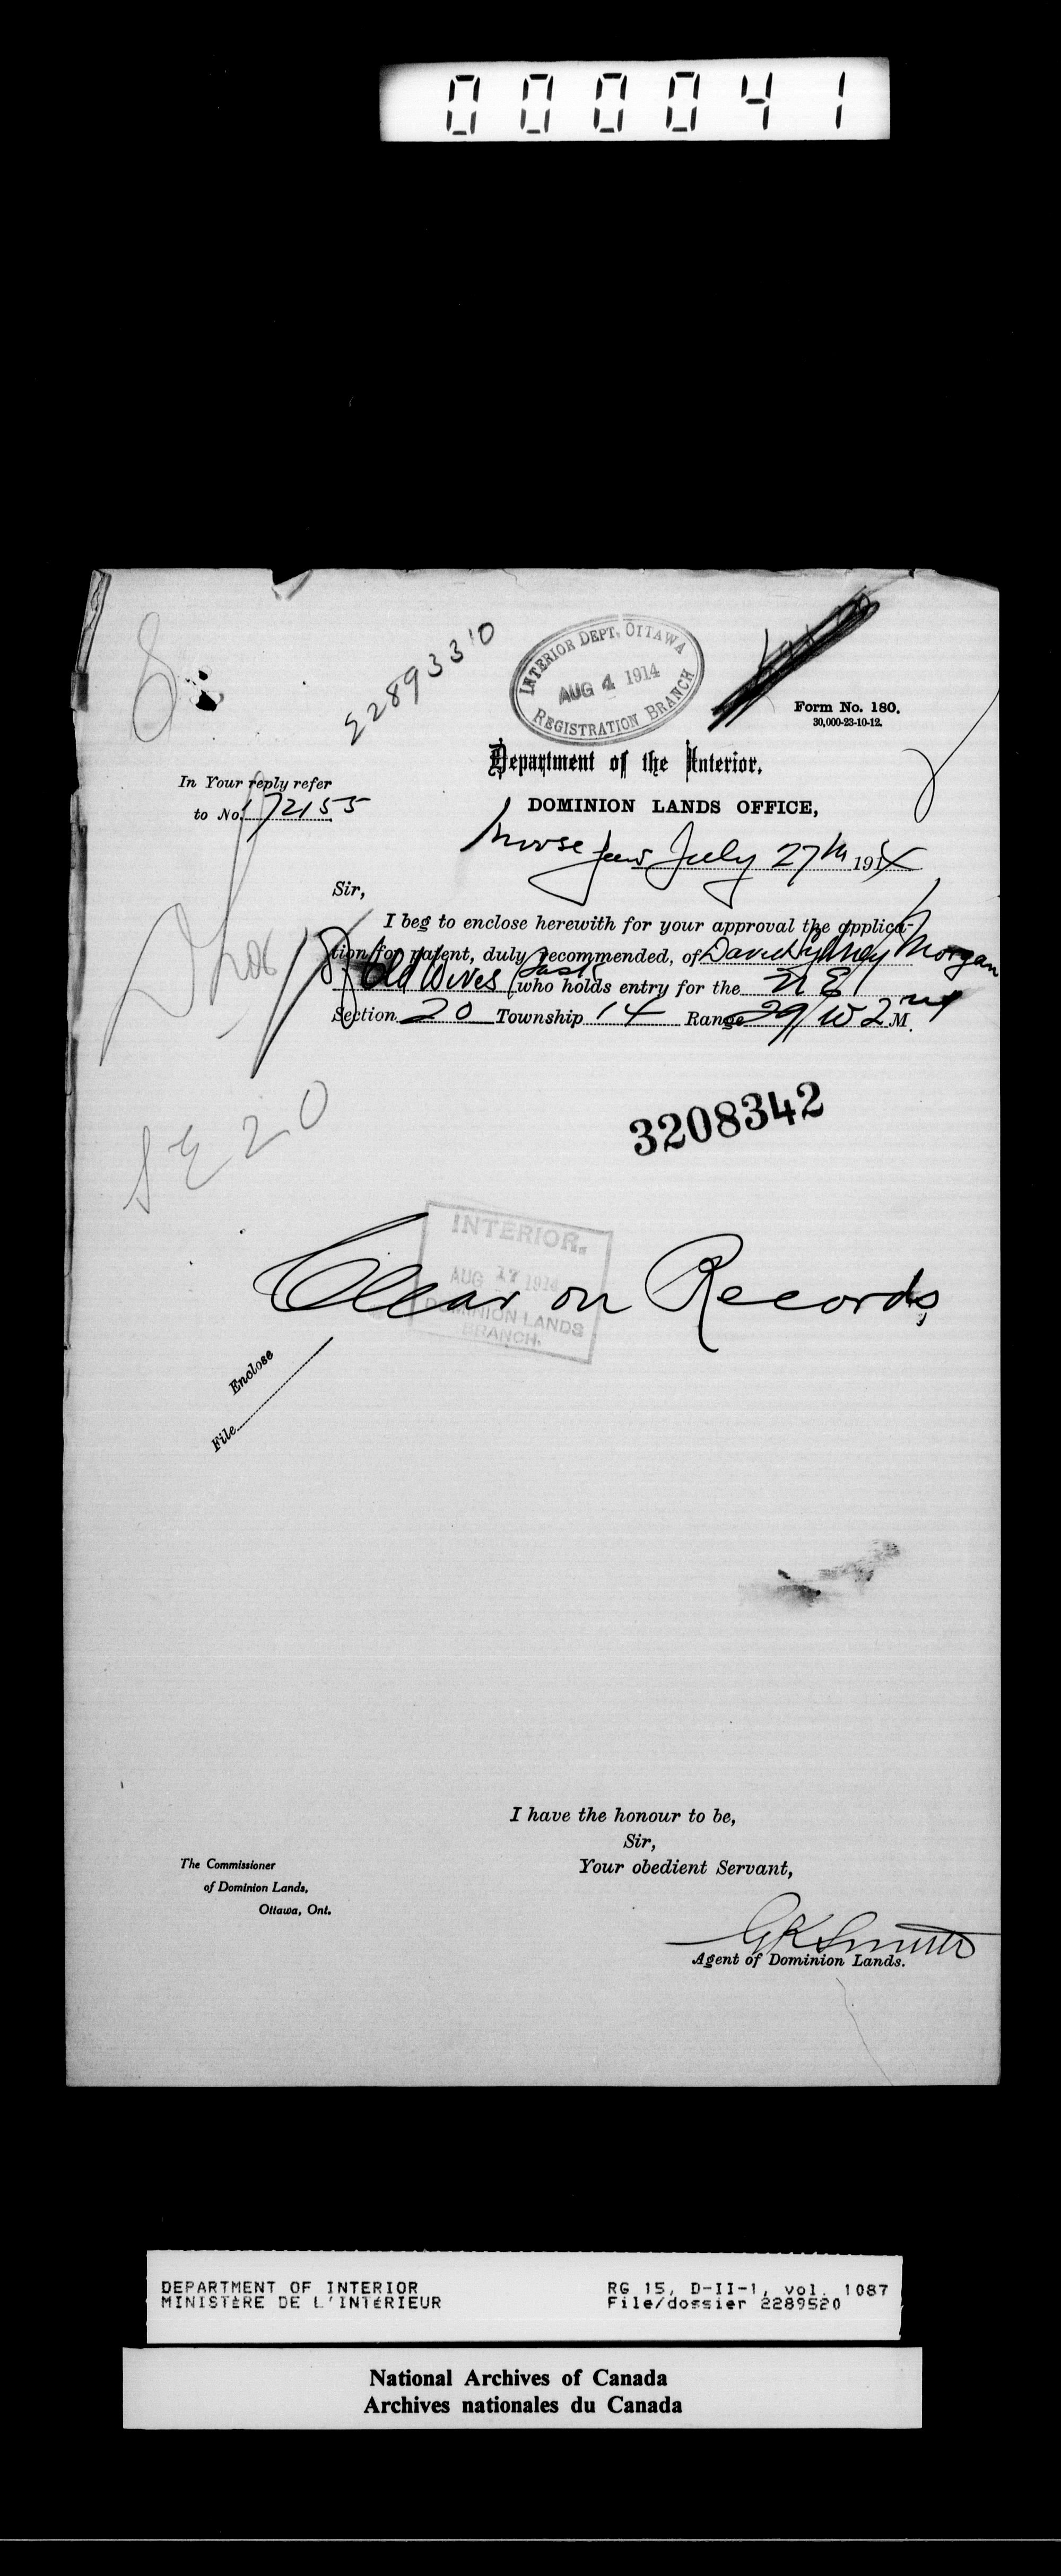 000041
2289330
INTERIOR DEPT. OTTAWA
AUG 4 1914
REGISTRATION BRANCH
Form No. 180.
30,000-23-10-12.
Department of the Interior.
In Your reply refer
to No. 172155
DOMINION LANDS OFFICE,
Moose Jaw July 27th 1914
Sir,
I beg to enclose herewith for your approval the applica-
tion for patent, duly recommended, of David Sydney Morgan
of Old Wives Sask who holds entry for the N E
Section 20 Township 14 Range 29 W 2nd M.
3208342
S E 20
INTERIOR.
AUG 17 1914
DOMINION LANDS
BRANCH.
Clear on Records
Enclose
File
I have the honour to be,
Sir,
Your obedient Servant,
The Commissioner
of Dominion Lands,
Ottawa, Ont.
G K Smith
Agent of Dominion Lands.
DEPARTMENT OF INTERIOR
MINISTÈRE DE L'INTÉRIEUR
RG 15, D-II-1, vol. 1087
File/dossier 2289520
National Archives of Canada
Archives nationales du Canada